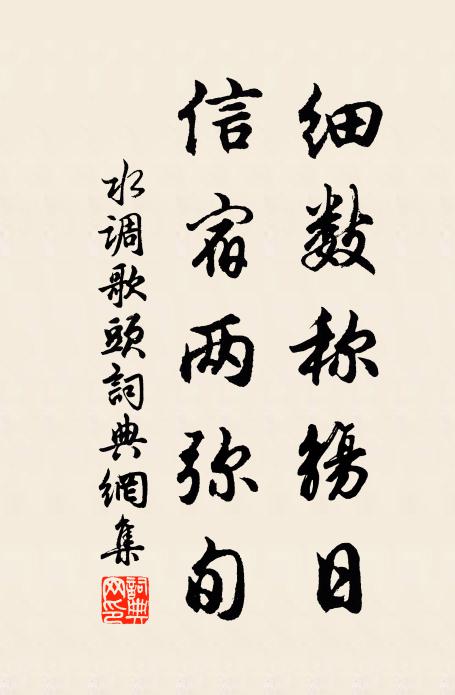 细数称觞日
信宿两弥旬
水调歌頭詞典網集
詞典网印